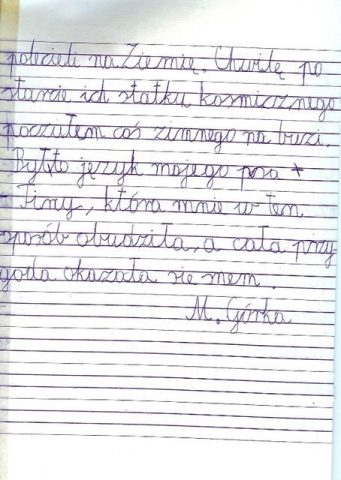 polecieli na Ziemię. Chwilę po
starcie ich statku kosmicznego
poczułem coś zimnego na buzi.
Był to język mojego psa +
- Finy, która mnie w ten
sposób obudziła, a cała przy
goda okazała się snem.
M. Górka